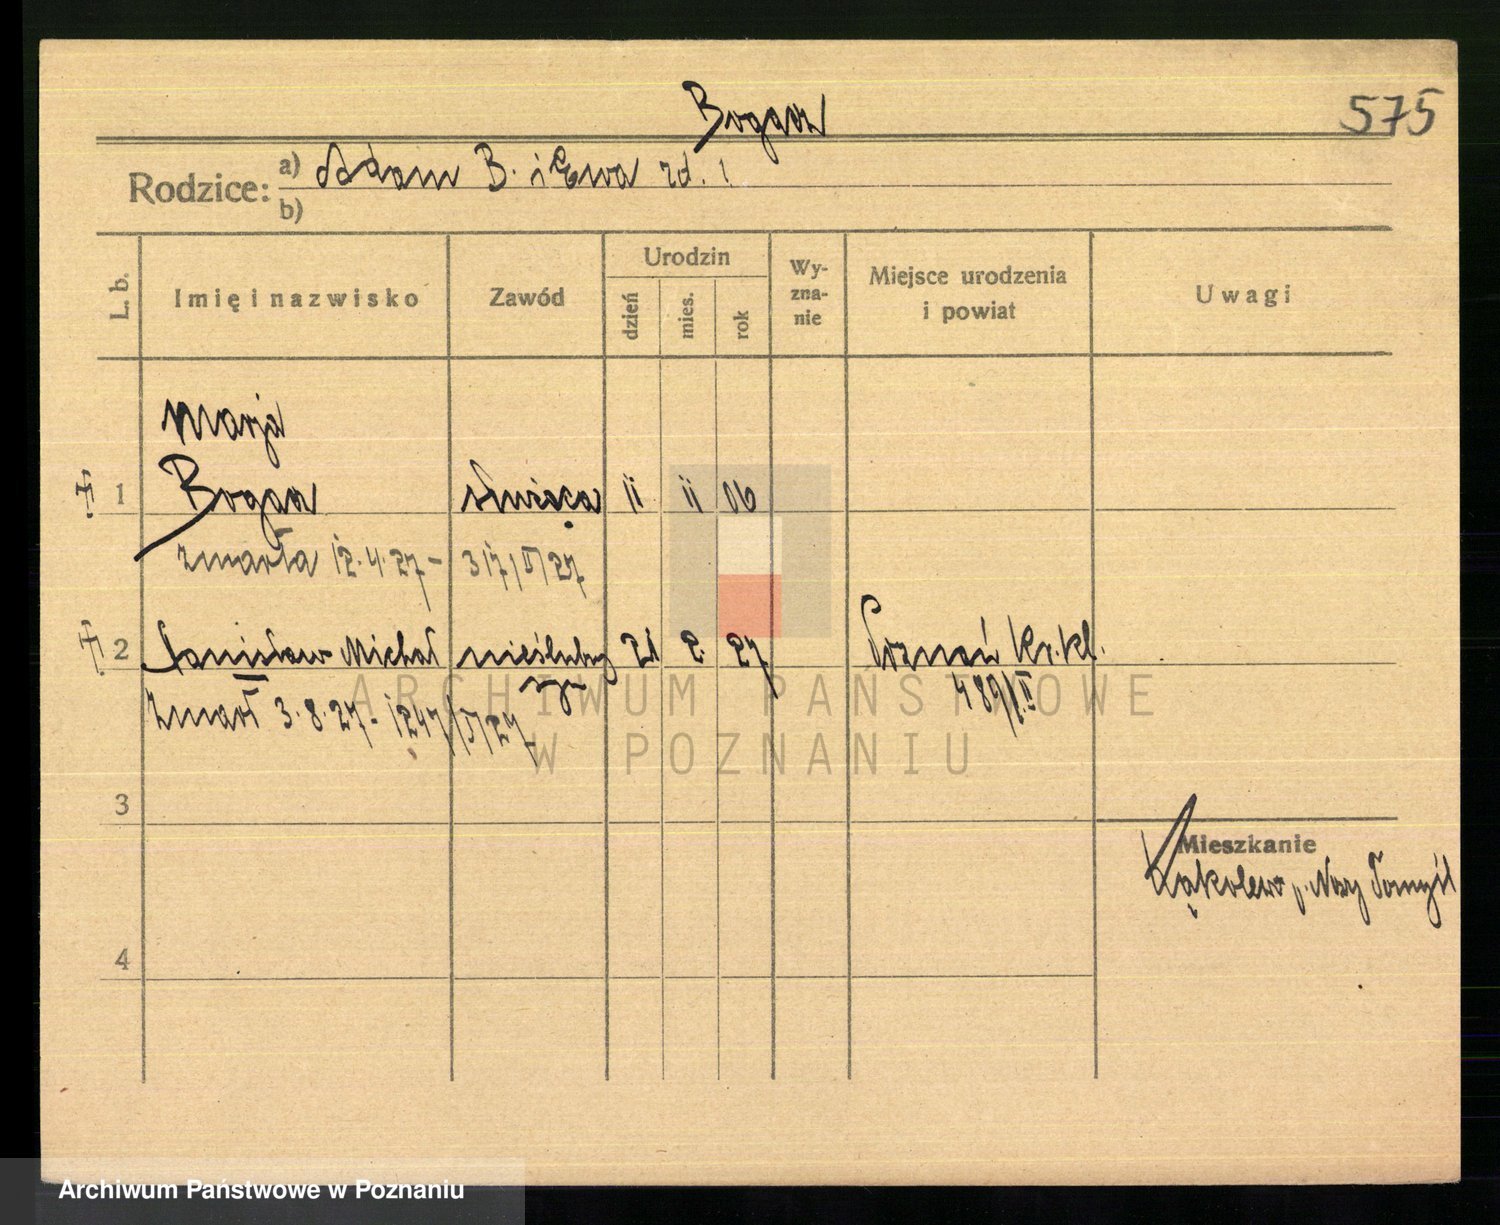 Bogacz
575
Rodzice: a) Adam B. i Ewa zd. ?
b)
L. b.
Imię i nazwisko
Zawód
Urodzin
dzień
mies.
rok
Wy-
zna-
nie
Miejsce urodzenia
i powiat
Uwagi
Marja
1 Bogacz służąca 11 11 06
zmarła 12.4.27 - 317/II/27
2 Stanisław Michał nieślubny 21 2. 27 Poznań Kr. kl.
syn 489/II
zmarł 3.8.27 - 1247/II/27
ARCHIWUM PAŃSTWOWE
W POZNANIU
3
Mieszkanie
Kąkolewo p. Nowy Tomyśl
4
Archiwum Państwowe w Poznaniu